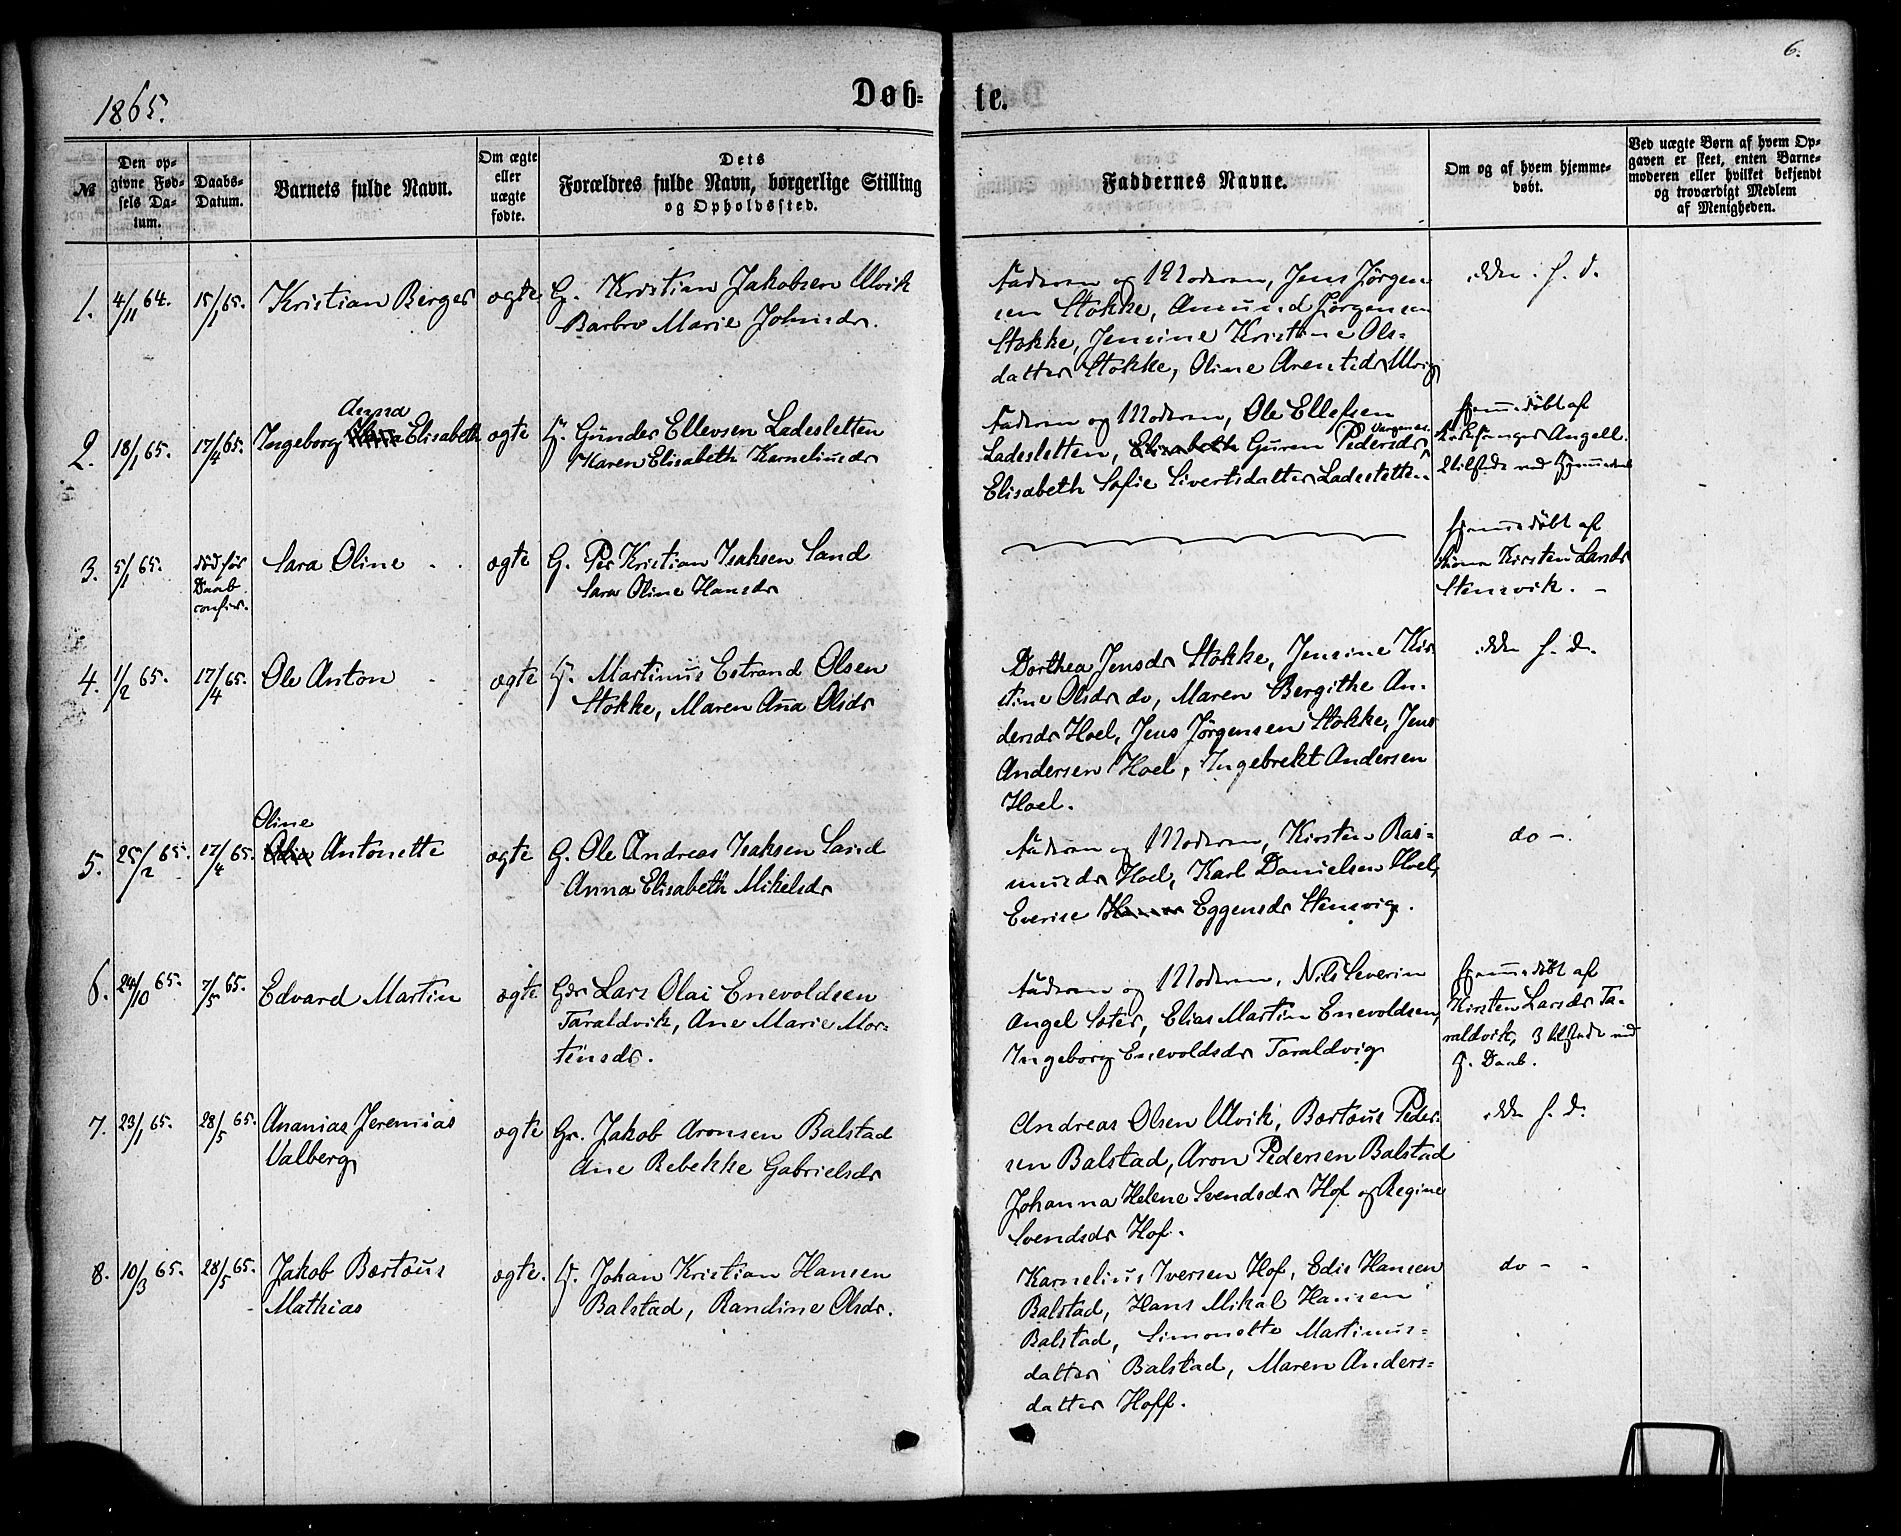 6.
1865.
Døb-
te.
№
Den op-
givne Fød-
sels Da-
tum.
Daabs-
Datum.
Barnets fulde Navn.
Om ægte
eller
uægte
fødte.
Dets
Forældres fulde Navn, borgerlige Stilling
og Opholdssted.
Faddernes Navne.
Om og af hvem hjemme-
døbt.
Ved uægte Børn af hvem Op-
gaven er skeet, enten Barne-
moderen eller hvilket bekjendt
og troværdigt Medlem
af Menigheden.
1.
4/11 64.
15/1 65.
Kristian Berger
ægte
G. Kristian Jakobsen Ulvik
Barbro Marie Johnsdr.
Faderen og Moderen, Jens Jørgen-
sen Stokke, Amund Jørgensen
Stokke, Jensine Kristine Ols-
datter Stokke, Oline Arentsdr Ulvig
ikke h. d.
2.
18/1 65.
17/4 65.
Anna
Ingeborg Elisabeth
ægte
Gunder Ellevsen Ladesletten
Karen Elisabeth Kornelius dr
Faderen og Moderen, Ole Ellefsen
Ladesletten, Elisabeth Guren Pedersdr
Elisabeth Sofie Sivertsdatter Ladesletten
Hjemmedøbt af
Angell.
2 tilstede ved
3.
5/1 65.
død før
Daab
confir.
Sara Oline
ægte
G. Per Kristian Isaksen Sand
Sara Oline Hansdr
hjemmedøbt af
Kirsten Larsdr
Stensvik.
4.
1/2 65.
17/4 65.
Ole Anton
ægte
Martinus Estrand Olsen
Stokke, Maren Anna Olsdr
Dorthea Jensdr Stokke, Jensine Kir-
stine Olsdr do, Maren Bergithe An-
dersdr Hoel, Jens Jørgensen Stokke, Jens
Andersen Hoel, Ingebrekt Andersen
Hoel.
ikke h. d.
5.
25/2 65.
17/4 65.
Oline
Antonette
ægte
G. Ole Andreas Isaksen Sand
Anna Elisabeth Mikelsdr
Faderen og Moderen, Kirsten Ras-
musdr Hoel, Karl Danielsen Hoel,
Everise Eggensdr Stensvig.
do -.
6.
24/10 65.
7/5 65.
Edvard Martin
ægte
Gdr Lars Olai Enevoldsen
Taraldvik, Ane Marie Mor-
tensdr.
Faderen og Moderen, Nils Severin
Angel Sæter, Elias Martin Enevoldsen,
Ingeborg Enevoldsdr Taraldvig
hjemmedøbt af
Kirsten Larsdr Ta-
raldvik, 3 tilstede ved
H. Daab.
7.
23/1 65.
28/5 65.
Ananias Jeremias
Valberg
ægte
Gr. Jakob Aronsen Balstad
Ane Rebekke Gabrielsdr
Andreas Olsen Ulvik, Bærtæus Peder-
sen Balstad, Aron Pedersen Balstad
Johanna Helene Svendsdr Hof og Regine
Svendsdr Hof.
ikke h. d.
8.
10/3 65.
28/5 65.
Jakob Bærtæus
Mathias
ægte.
Johan Kristian Hansen
Balstad, Randine Olsdr.
Karnelius Iversen Hof, Edis Hansen
Balstad, Hans Mikal Hansen
Balstad, Simonette Martinus-
datter Balstad, Maren Anders-
datter Hoff.
do -